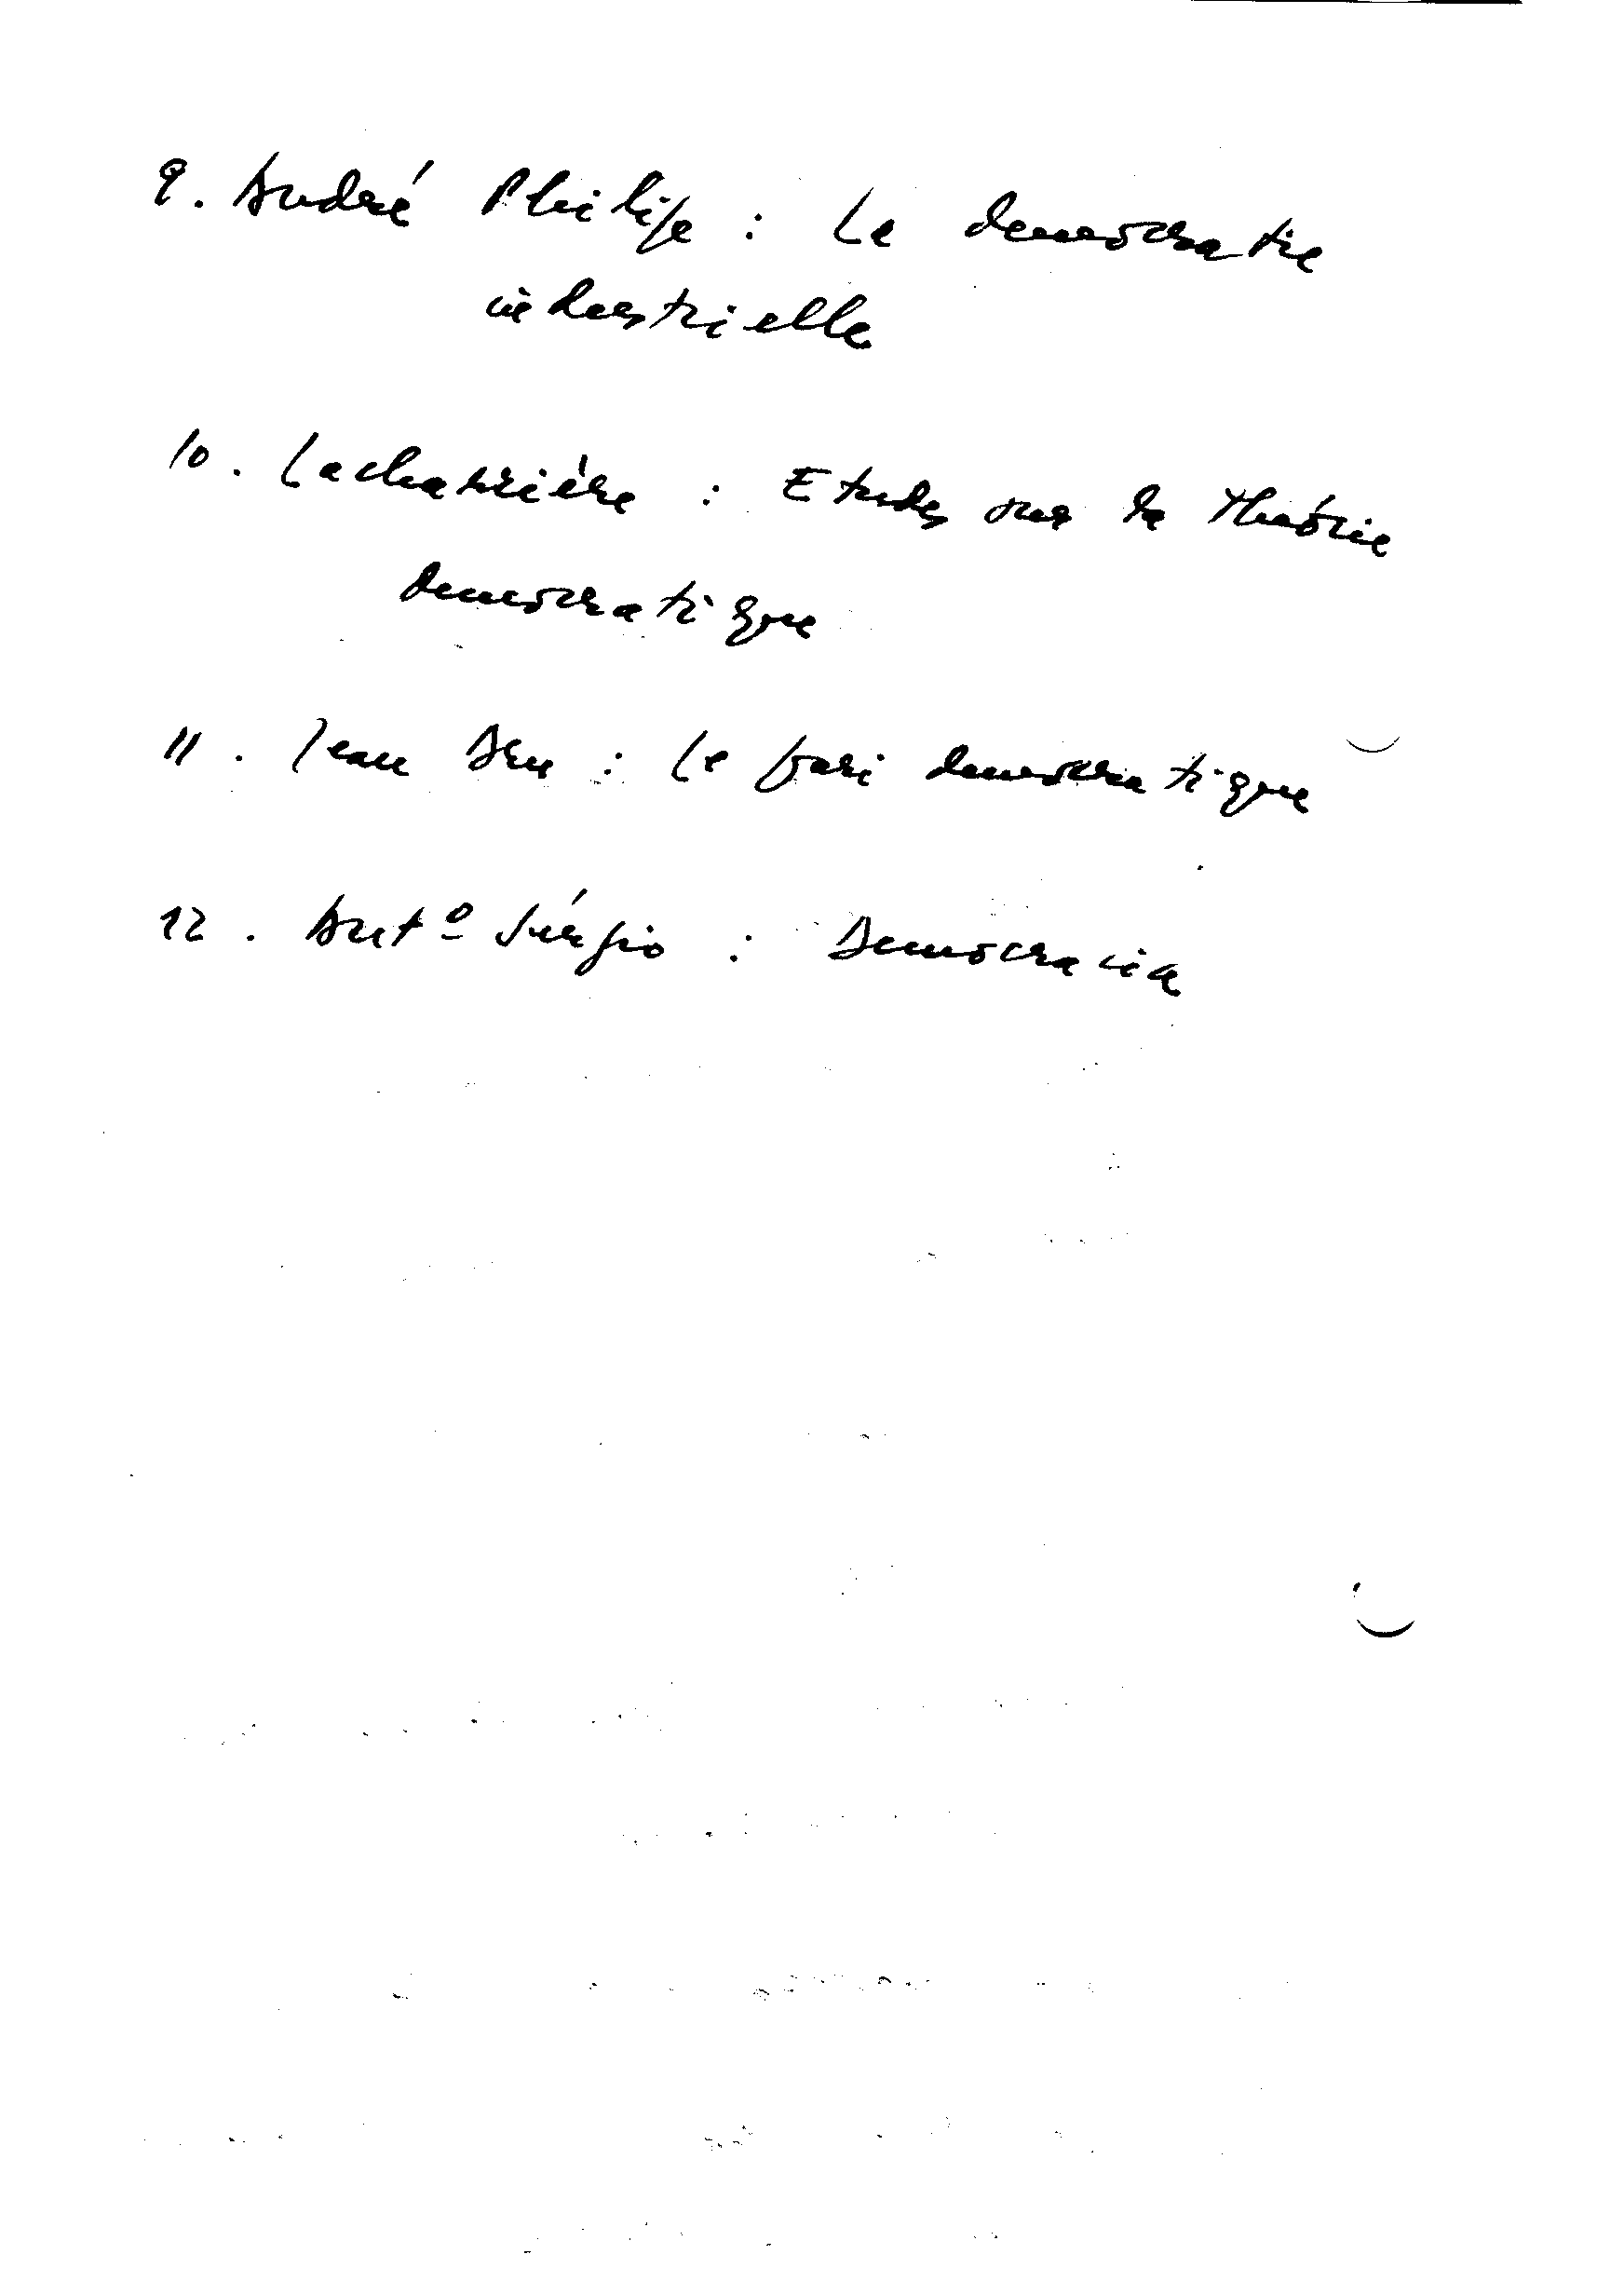 9. André Philipe : La democratie
industrielle
10. Lacharrière : Etudes sur la théorie
democratique
11. Jean : Le pari democratique
12. Antº Sérgio : Democracia